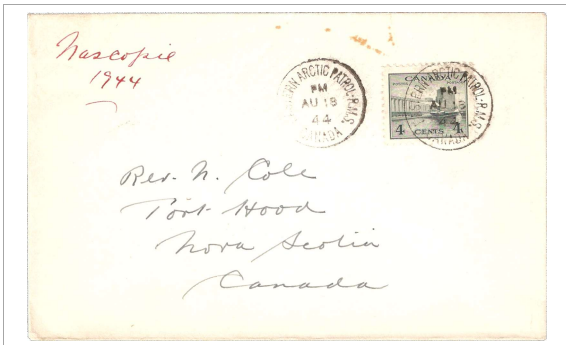 Nascopie
1944
EASTERN ARCTIC PATROL-R.M.S.
PM
AU 18
44
CANADA
CANADA
4 CENTS 4
EASTERN ARCTIC PATROL-R.M.S.
PM
AU 18
44
CANADA
Rev. N. Cole
Port Hood
Nova Scotia
Canada